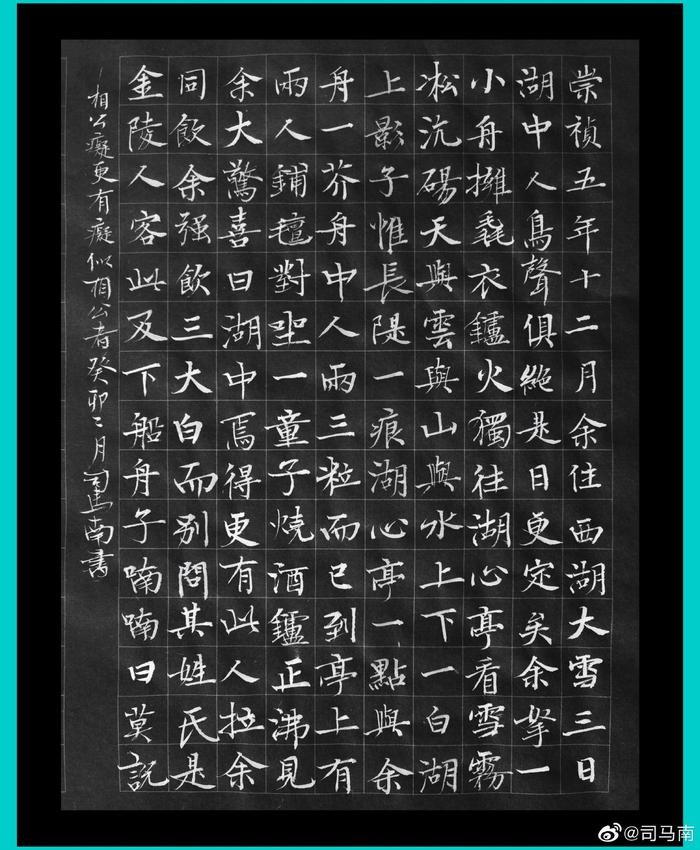 崇禎五年十二月余住西湖大雪三日
湖中人鳥聲俱絶是日更定矣余拏一
小舟擁毳衣鑪火獨往湖心亭看雪霧
凇沆碭天與雲與山與水上下一白湖
上影子惟長隄一痕湖心亭一點與余
舟一芥舟中人兩三粒而已到亭上有
兩人鋪氊對坐一童子燒酒鑪正沸見
余大驚喜曰湖中焉得更有此人拉余
同飲余强飲三大白而別問其姓氏是
金陵人客此及下船舟子喃喃曰莫説
相公癡更有癡似相公者癸卯二月司馬南書
@司马南